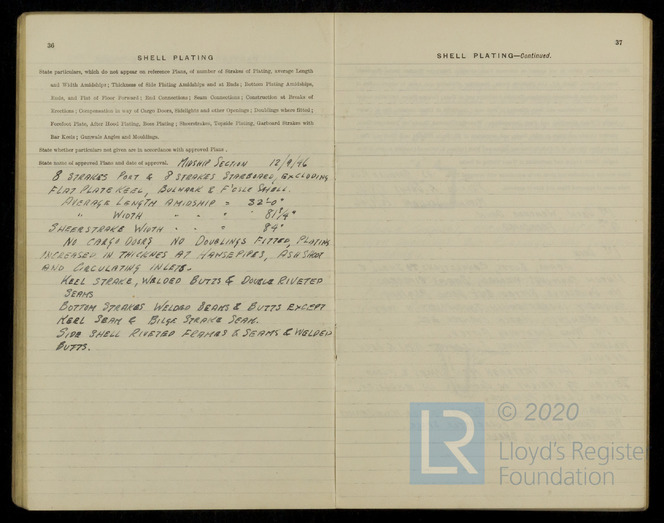 36
SHELL PLATING
State particulars, which do not appear on reference Plans, of number of Strakes of Plating, average Length
and Width Amidships; Thickness of Side Plating Amidships and at Ends; Bottom Plating Amidships,
Ends, and Flat of Floor Forward; End Connections; Seam Connections; Construction at Breaks of
Erections; Compensation in way of Cargo Doors, Sidelights and other Openings; Doublings where fitted;
Forefoot Plate, After Hood Plating, Boss Plating; Sheerstrakes, Topside Plating, Garboard Strakes with
Bar Keels; Gunwale Angles and Mouldings.
State whether particulars not given are in accordance with approved Plans.
State name of approved Plans and date of approval. MIDSHIP SECTION 12/9/46
8 STRAKES PORT & 8 STRAKES STARBOARD, EXCLUDING
FLAT PLATE KEEL, BULWARK & F'CSLE SHELL.
AVERAGE LENGTH AMIDSHIP = 32'-0"
" WIDTH " " " 81¼"
SHEERSTRAKE WIDTH " " " 84"
NO CARGO DOORS NO DOUBLINGS FITTED, PLATING
INCREASED IN THICKNES AT HAWSEPIPES, ASH SHOOT
AND CIRCULATING INLETS.
KEEL STRAKE, WELDED BUTTS & DOUBLE RIVETED
SEAMS
BOTTOM STRAKES WELDED SEAMS & BUTTS EXCEPT
KEEL SEAM & BILGE STRAKE SEAM.
SIDE SHELL RIVETED FRAMES & SEAMS & WELDED
BUTTS.
37
SHELL PLATING—Continued.
LR
© 2020
Lloyd's Register
Foundation